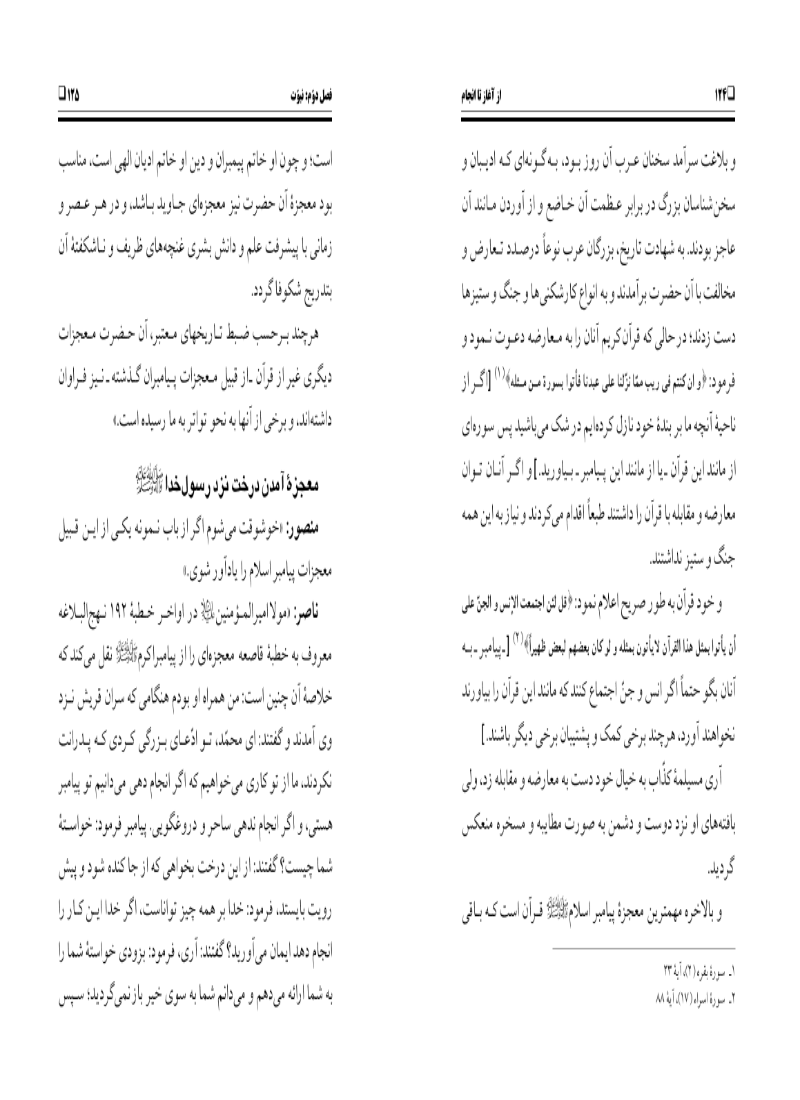 ❑۱۲۴ از آغاز تا انجام
و بلاغت سرآمد سخنان عرب آن روز بود، به‌گونه‌ای که ادیبان و
سخن‌شناسان بزرگ در برابر عظمت آن خاضع و از آوردن مانند آن
عاجز بودند. به شهادت تاریخ، بزرگان عرب نوعاً درصدد تعارض و
مخالفت با آن حضرت برآمدند و به انواع کارشکنی‌ها و جنگ و ستیزها
دست زدند؛ در حالی که قرآن کریم آنان را به معارضه دعوت نمود و
فرمود: ﴿و ان کنتم فی ریب ممّا نزّلنا علی عبدنا فأتوا بسورة من مثله﴾(۱) [اگر از
ناحیهٔ آنچه ما بر بندهٔ خود نازل کرده‌ایم در شک می‌باشید پس سوره‌ای
از مانند این قرآن ـ یا از مانند این پیامبر ـ بیاورید.] و اگر آنان توان
معارضه و مقابله با قرآن را داشتند طبعاً اقدام می‌کردند و نیاز به این همه
جنگ و ستیز نداشتند.
و خود قرآن به طور صریح اعلام نمود: ﴿قل لئن اجتمعت الإنس و الجنّ علی
أن یأتوا بمثل هذا القرآن لایأتون بمثله و لو کان بعضهم لبعض ظهیراً﴾(۲) [ـ پیامبر ـ به
آنان بگو حتماً اگر انس و جنّ اجتماع کنند که مانند این قرآن را بیاورند
نخواهند آورد، هرچند برخی کمک و پشتیبان برخی دیگر باشند.]
آری مسیلمهٔ کذّاب به خیال خود دست به معارضه و مقابله زد، ولی
بافته‌های او نزد دوست و دشمن به صورت مطایبه و مسخره منعکس
گردید.
و بالاخره مهمترین معجزهٔ پیامبر اسلام ﷺ قرآن است که باقی
۱ـ سورهٔ بقره (۲)، آیهٔ ۲۳
۲ـ سورهٔ اسراء (۱۷)، آیهٔ ۸۸
فصل دوّم: نبوّت ۱۲۵❑
است؛ و چون او خاتم پیمبران و دین او خاتم ادیان الهی است، مناسب
بود معجزهٔ آن حضرت نیز معجزه‌ای جاوید باشد، و در هر عصر و
زمانی با پیشرفت علم و دانش بشری غنچه‌های ظریف و ناشکفتهٔ آن
بتدریج شکوفا گردد.
هرچند برحسب ضبط تاریخهای معتبر، آن حضرت معجزات
دیگری غیر از قرآن ـ از قبیل معجزات پیامبران گذشته ـ نیز فراوان
داشته‌اند، و برخی از آنها به نحو تواتر به ما رسیده است.»
معجزهٔ آمدن درخت نزد رسول‌خدا ﷺ
منصور: «خوشوقت می‌شوم اگر از باب نمونه یکی از این قبیل
معجزات پیامبر اسلام را یادآور شوی.»
ناصر: «مولا امیرالمؤمنین علیه‌السلام در اواخر خطبهٔ ۱۹۲ نهج‌البلاغه
معروف به خطبهٔ قاصعه معجزه‌ای را از پیامبراکرم ﷺ نقل می‌کند که
خلاصهٔ آن چنین است: من همراه او بودم هنگامی که سران قریش نزد
وی آمدند و گفتند: ای محمّد، تو ادّعای بزرگی کردی که پدرانت
نکردند، ما از تو کاری می‌خواهیم که اگر انجام دهی می‌دانیم تو پیامبر
هستی، و اگر انجام ندهی ساحر و دروغگویی. پیامبر فرمود: خواستهٔ
شما چیست؟ گفتند: از این درخت بخواهی که از جا کنده شود و پیش
رویت بایستد، فرمود: خدا بر همه چیز تواناست، اگر خدا این کار را
انجام دهد ایمان می‌آورید؟ گفتند: آری، فرمود: بزودی خواستهٔ شما را
به شما ارائه می‌دهم و می‌دانم شما به سوی خیر باز نمی‌گردید؛ سپس